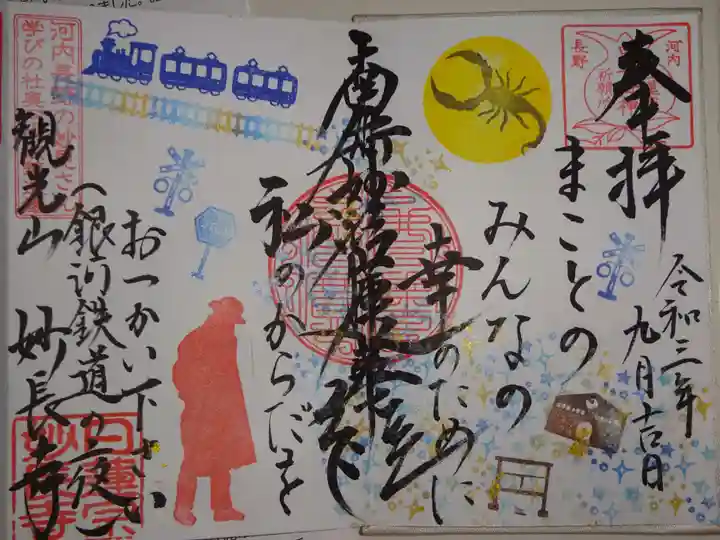 奉拝
河内
長野
令和三年
九月吉日
まことの
みんなの
幸のために
南無妙法蓮華経
私のからだを
おつかい下さい
(銀河鉄道の夜)
観光山 妙長寺
日蓮宗
妙長寺